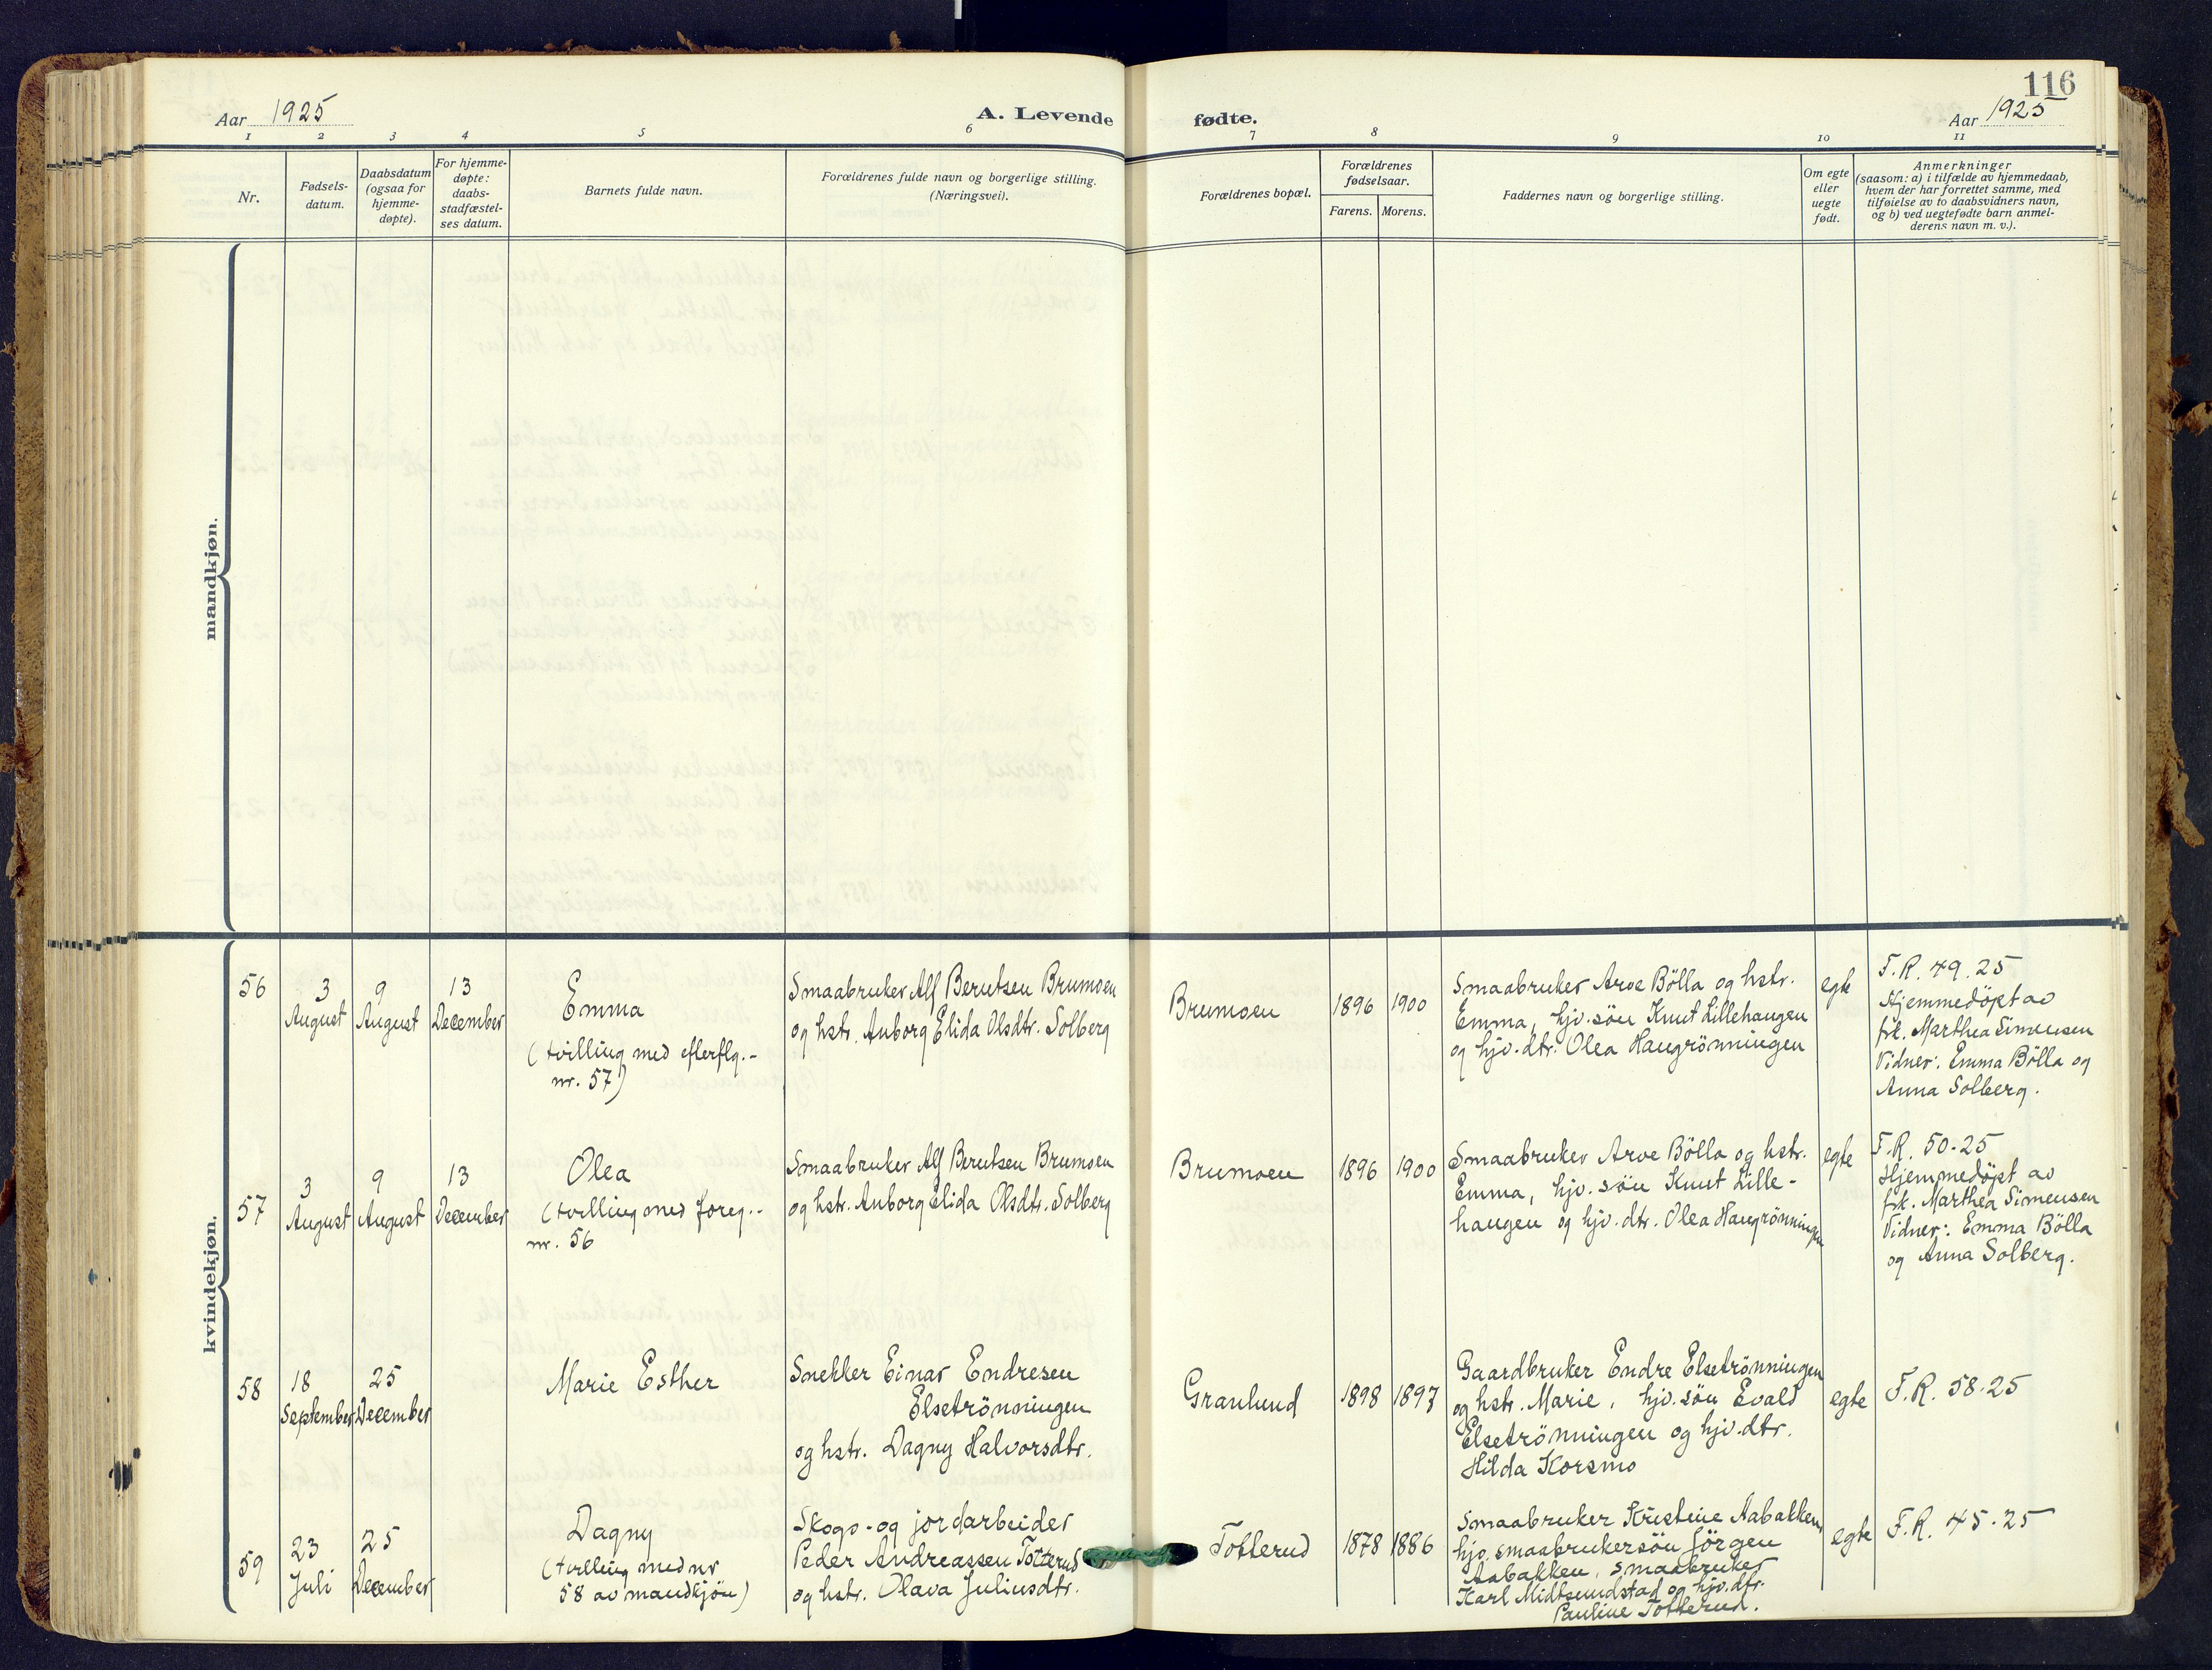 116
Aar 1925
A. Levende
fødte.
Aar 1925
1 2 3 4 5 6 7 8 9 10 11
Nr.
Fødsels-
datum.
Daabsdatum
(ogsaa for
hjemme-
døpte).
For hjemme-
døpte:
daabs-
stadfæstel-
ses datum.
Barnets fulde navn.
Forældrenes fulde navn og borgerlige stilling.
(Næringsvei).
Forældrenes bopæl.
Forældrenes
fødselsaar.
Farens. Morens.
Faddernes navn og borgerlige stilling.
Om egte
eller
uegte
født.
Anmerkninger
(saasom: a) i tilfælde av hjemmedaab,
hvem der har forrettet samme, med
tilføielse av to daabsvidners navn,
og b) ved uegtefødte barn anmel-
derens navn m. v.).
mandkjøn.
kvindekjøn.
56
3
August
9
August
13
December
Emma
(tvilling med efterflg.-
nr. 57)
Smaabruker Alf Berntsen Brumoen
og hstr. Anborg Elida Olsdtr. Solberg
Brumoen
1896
1900
Smaabruker Arve Bölla og hstr.
Emma, hjv. sön Knut Lillehaugen
og hjv. dtr. Olea Haugrönningen
egte
F.R. 49.25
Hjemmedöpt av
frk. Marthea Simensen
Vidner: Emma Bölla og
Anna Solberg.
57
3
August
9
August
13
December
Olea
(tvilling med foreg.-
nr. 56
Smaabruker Alf Berntsen Brumoen
og hstr. Anborg Elida Olsdtr. Solberg
Brumoen
1896
1900
Smaabruker Arve Bölla og hstr.
Emma, hjv. sön Knut Lille-
haugen og hjv. dtr. Olea Haugrönningen
egte
F.R. 50-25
Hjemmedöpt av
frk. Marthea Simensen
Vidner: Emma Bölla
og Anna Solberg.
58
18
September
25
December
Marie Esther
Snekker Einar Endresen
Elsetrönningen
og hstr. Dagny Halvorsdtr.
Granlund
1898
1897
Gaardbruker Endre Elsetrönningen
og hstr. Marie, hjv. sön Evald
Elsetrönningen og hjv. dtr.
Hilda Korsmo
egte
F.R. 58-25
59
23
Juli
25
December
Dagny
(tvilling med nr
58 av mandkjön)
Skogs- og jordarbeider
Peder Andreassen Totterud
og hstr. Olava Juliusdtr.
Totterud
1878
1886
Smaabruker Kristine Aabakken,
hjv. smaabrukersön Jörgen
Aabakken, smaabruker
Karl Midtsundstad og hjv. dtr.
Pauline Totterud.
egte
F.R. 45-25